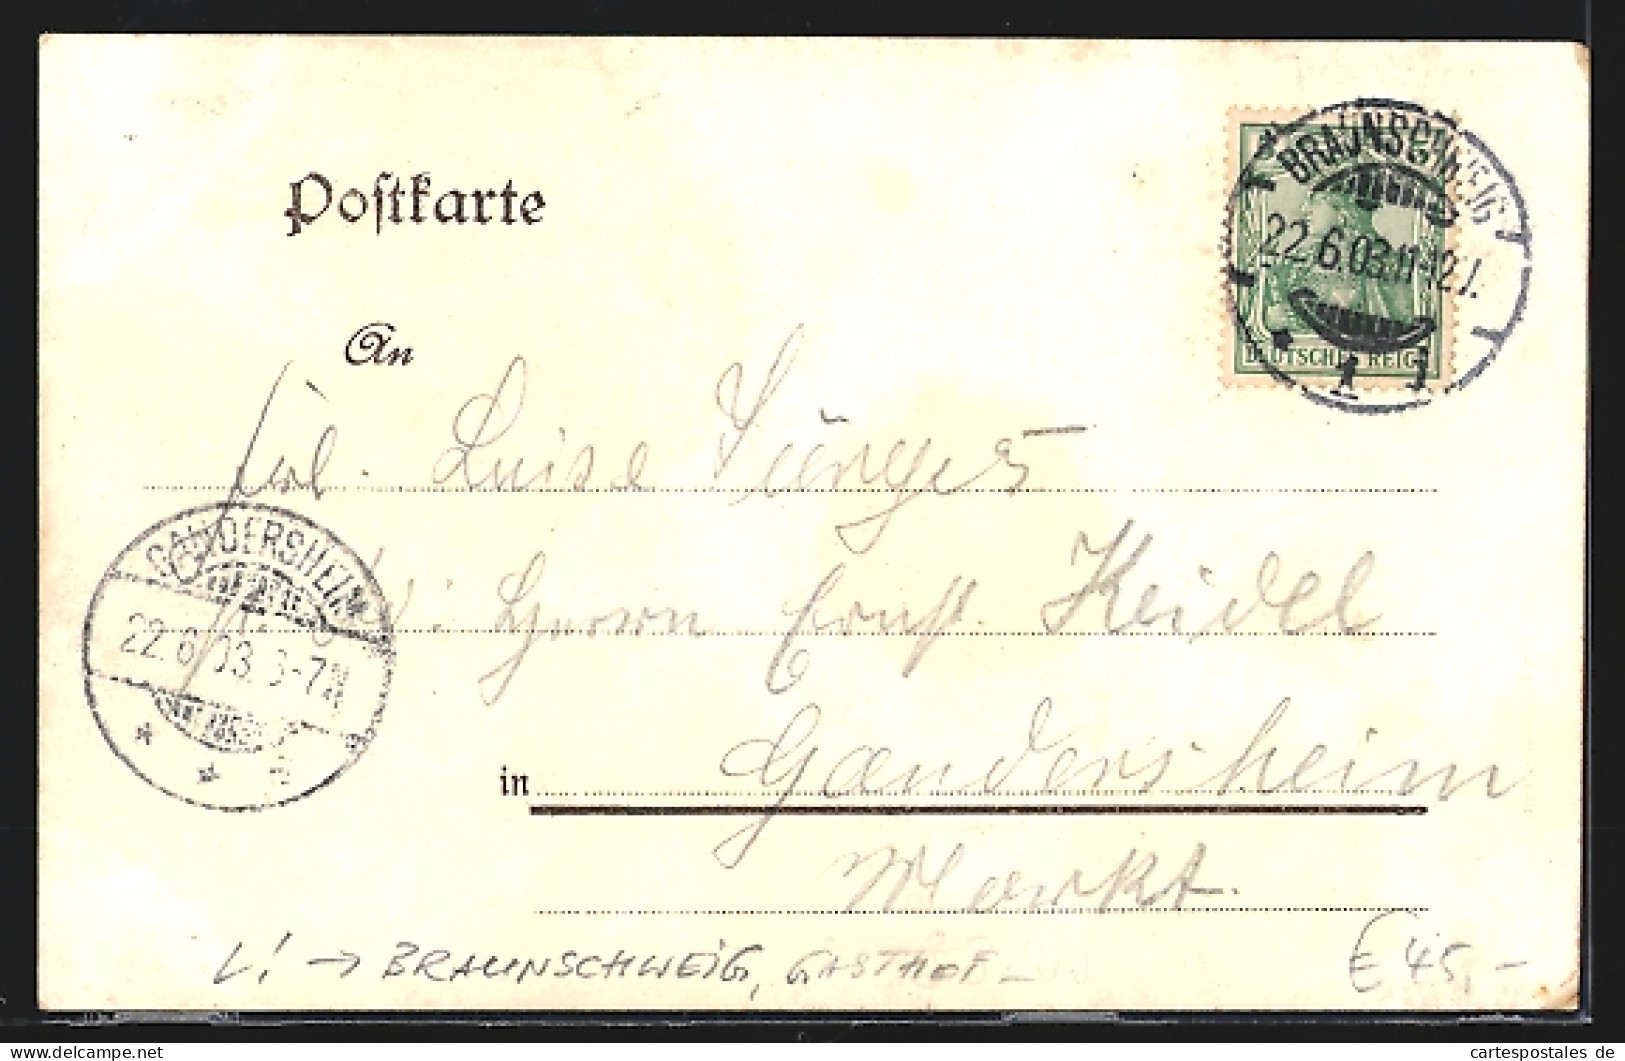 Postkarte
BRAUNSCHWEIG
22.6.03.11-12.V.
* 1 j
DEUTSCHES REICH
An
Frl. Luise Jürges
GANDERSHEIM
22.6.03. 6-7N
* *
Herrn Ernst Keidel
in Gandersheim
Markt.
L! → BRAUNSCHWEIG, GASTHOF –
€ 45,–
cartespostales de